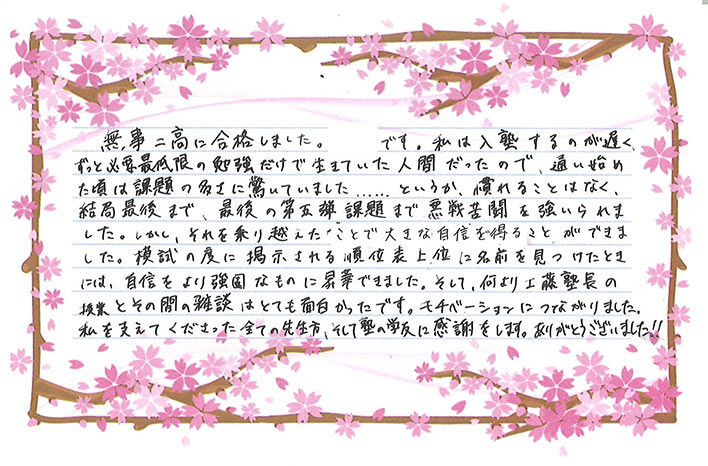 無事二高に合格しました。 です。私は入塾するのが遅く、
ずっと必要最低限の勉強だけで生きていた人間だったので、通い始め
た頃は課題の多さに驚いていました……というか、慣れることはなく、
結局最後まで、最後の第五弾課題まで悪戦苦闘を強いられま
した。しかし、それを乗り越えたことで大きな自信を得ることができま
した。模試の度に掲示される順位表上位に名前を見つけたとき
には、自信をより強固なものに昇華できました。そして、何より工藤塾長の
授業とその間の雑談はとても面白かったです。モチベーションにつながりました。
私を支えてくださった全ての先生方、そして塾の学友に感謝をします。ありがとうございました!!